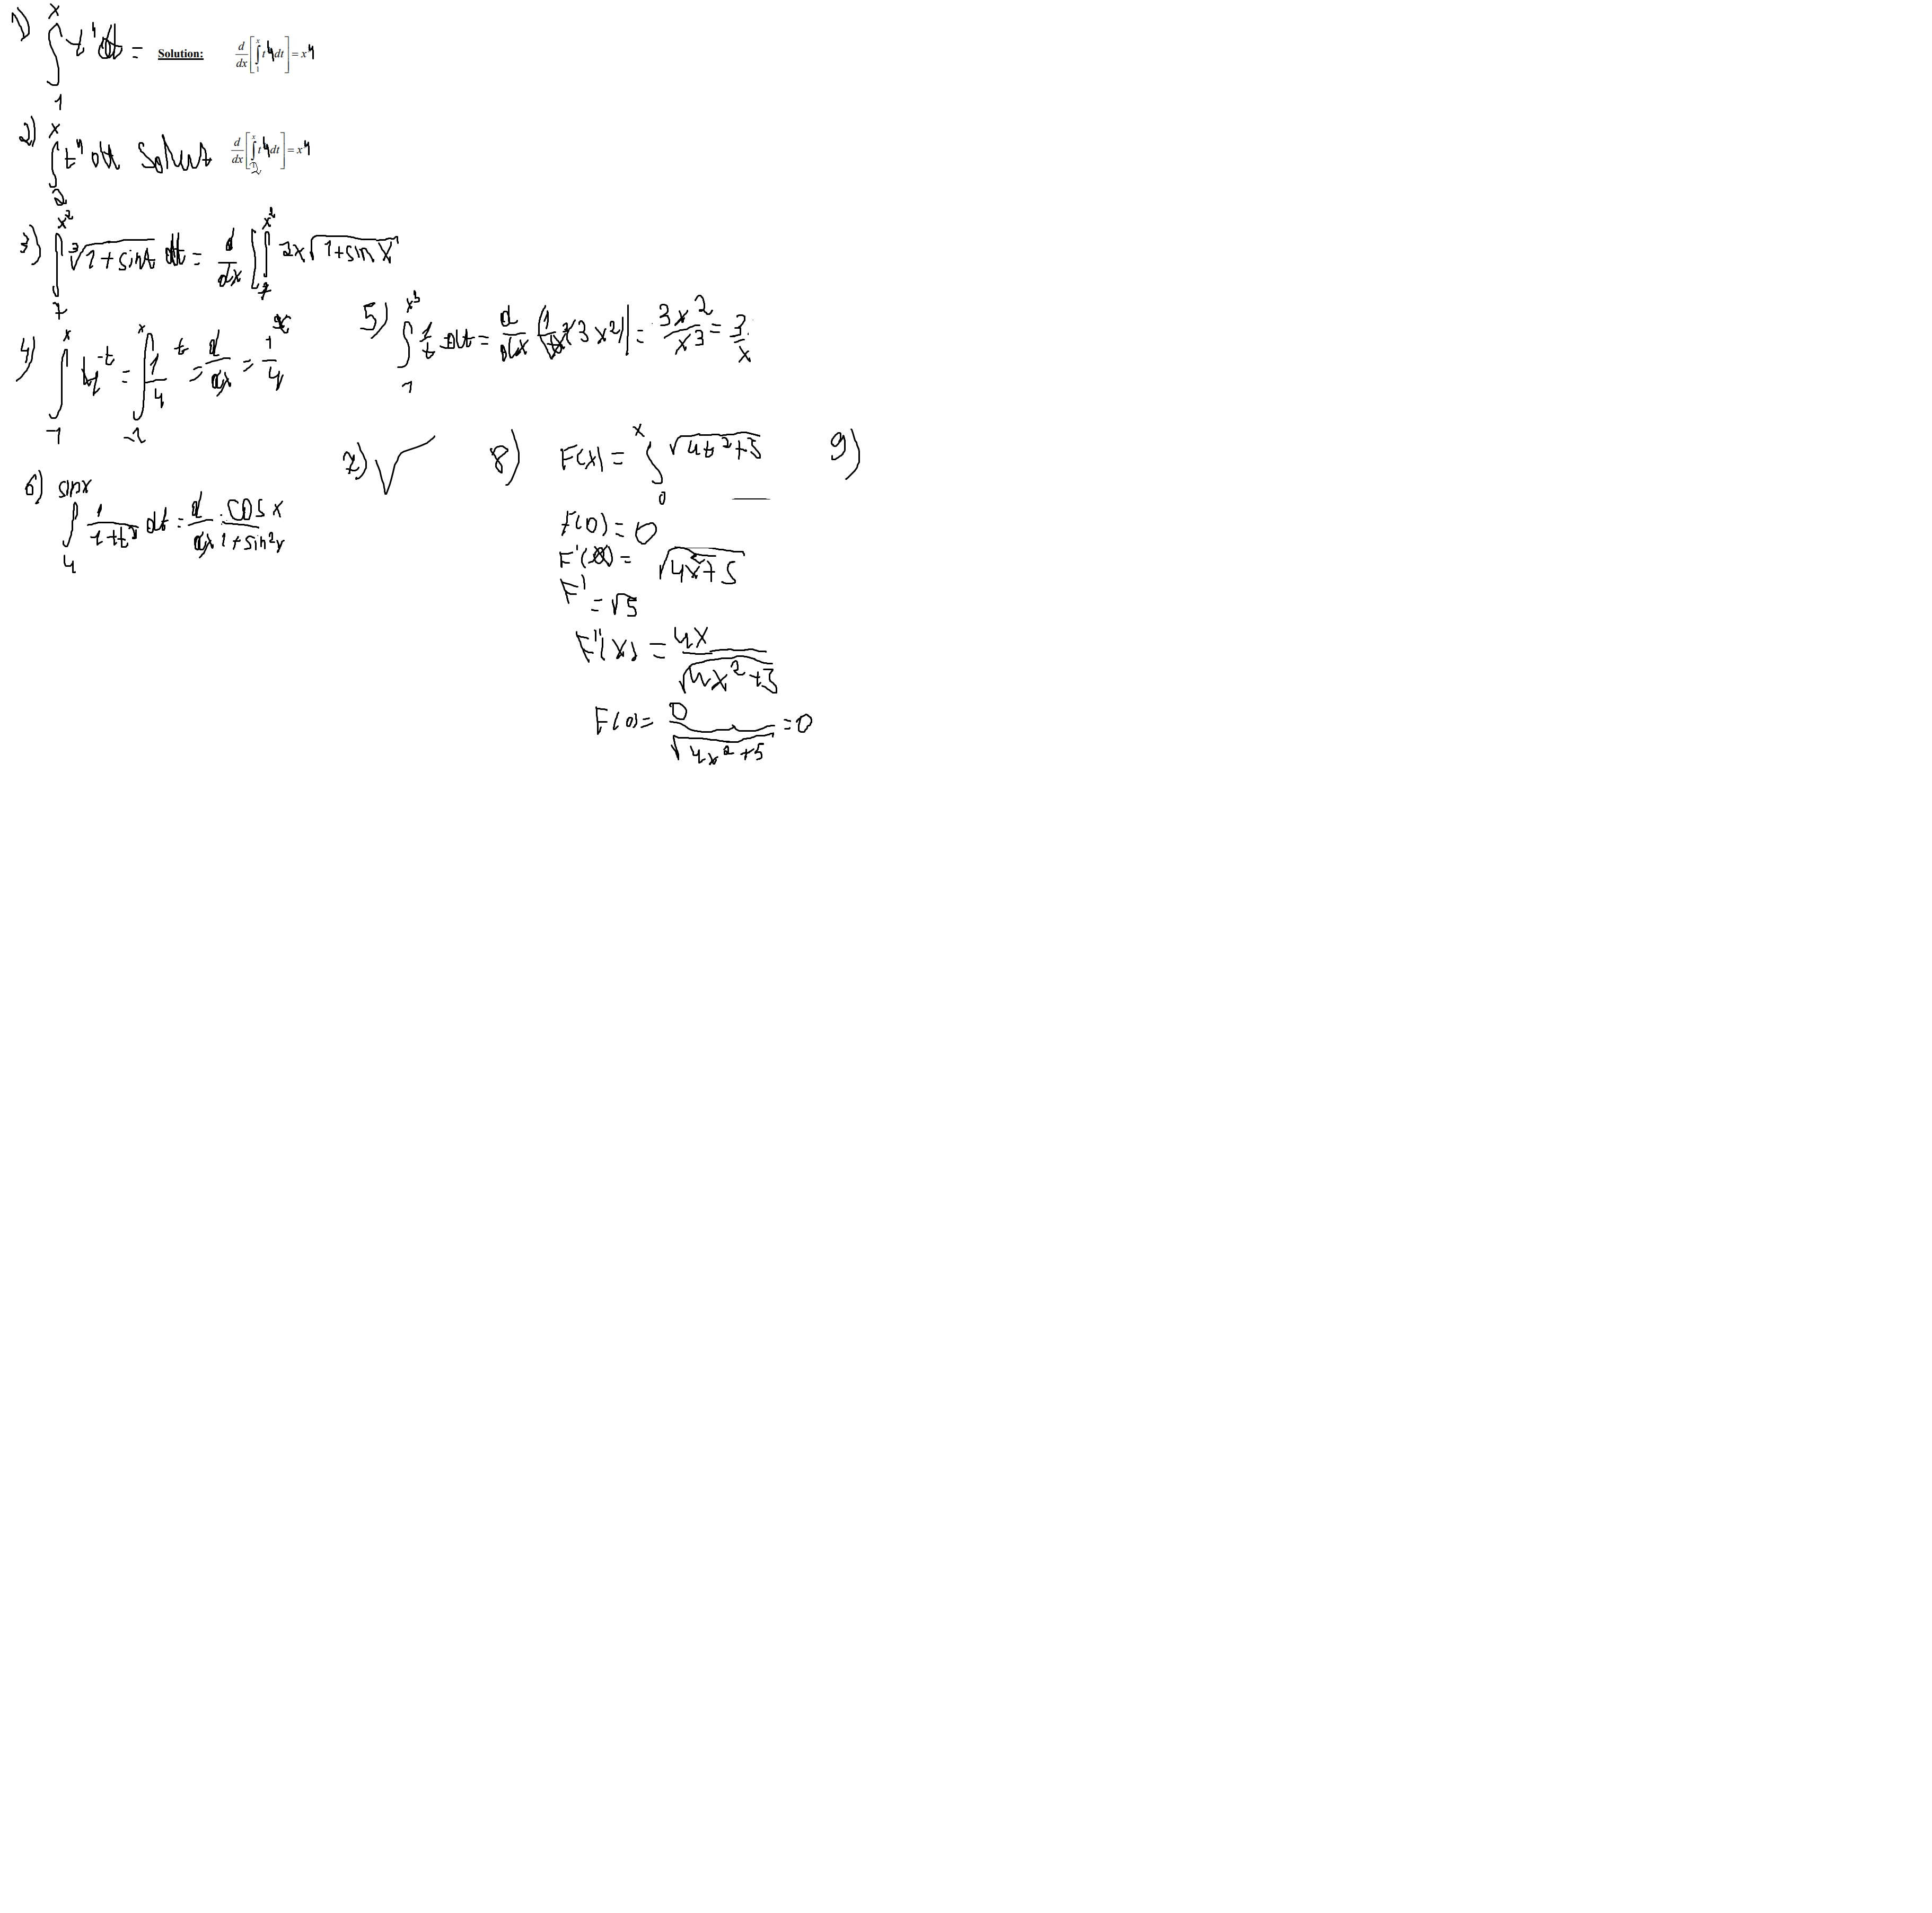 1) ∫₁ˣ t⁴dt = Solution: d/dx [∫₁ˣ t⁴dt] = x⁴
2) ∫₂ˣ t⁴ dt Solut d/dx [∫₂ˣ t⁴dt] = x⁴
3) ∫₇^x² ³√(1+sint) dt = d/dx [∫₇^x² 2x√(1+sin x)
4) ∫₋₁ˣ 4^-t = ∫₋₁ˣ 1/4 ^t = d/dx = 1/4 ^x
5) ∫₁^x³ 1/t dt = d/dx (3x²) = 3x²/x³ = 3/x
6) ∫₄^sinx 1/(1+t²) dt = d/dx · cosx/(1+sin²x)
7) √
8) F(x) = ∫₀ˣ √(4t²+5)
F(0) = 0
F'(x) = √(4x²+5)
F' = √5
F''(x) = 4x/√(4x²+5)
F(0) = 0/√(4x²+5) = 0
9)